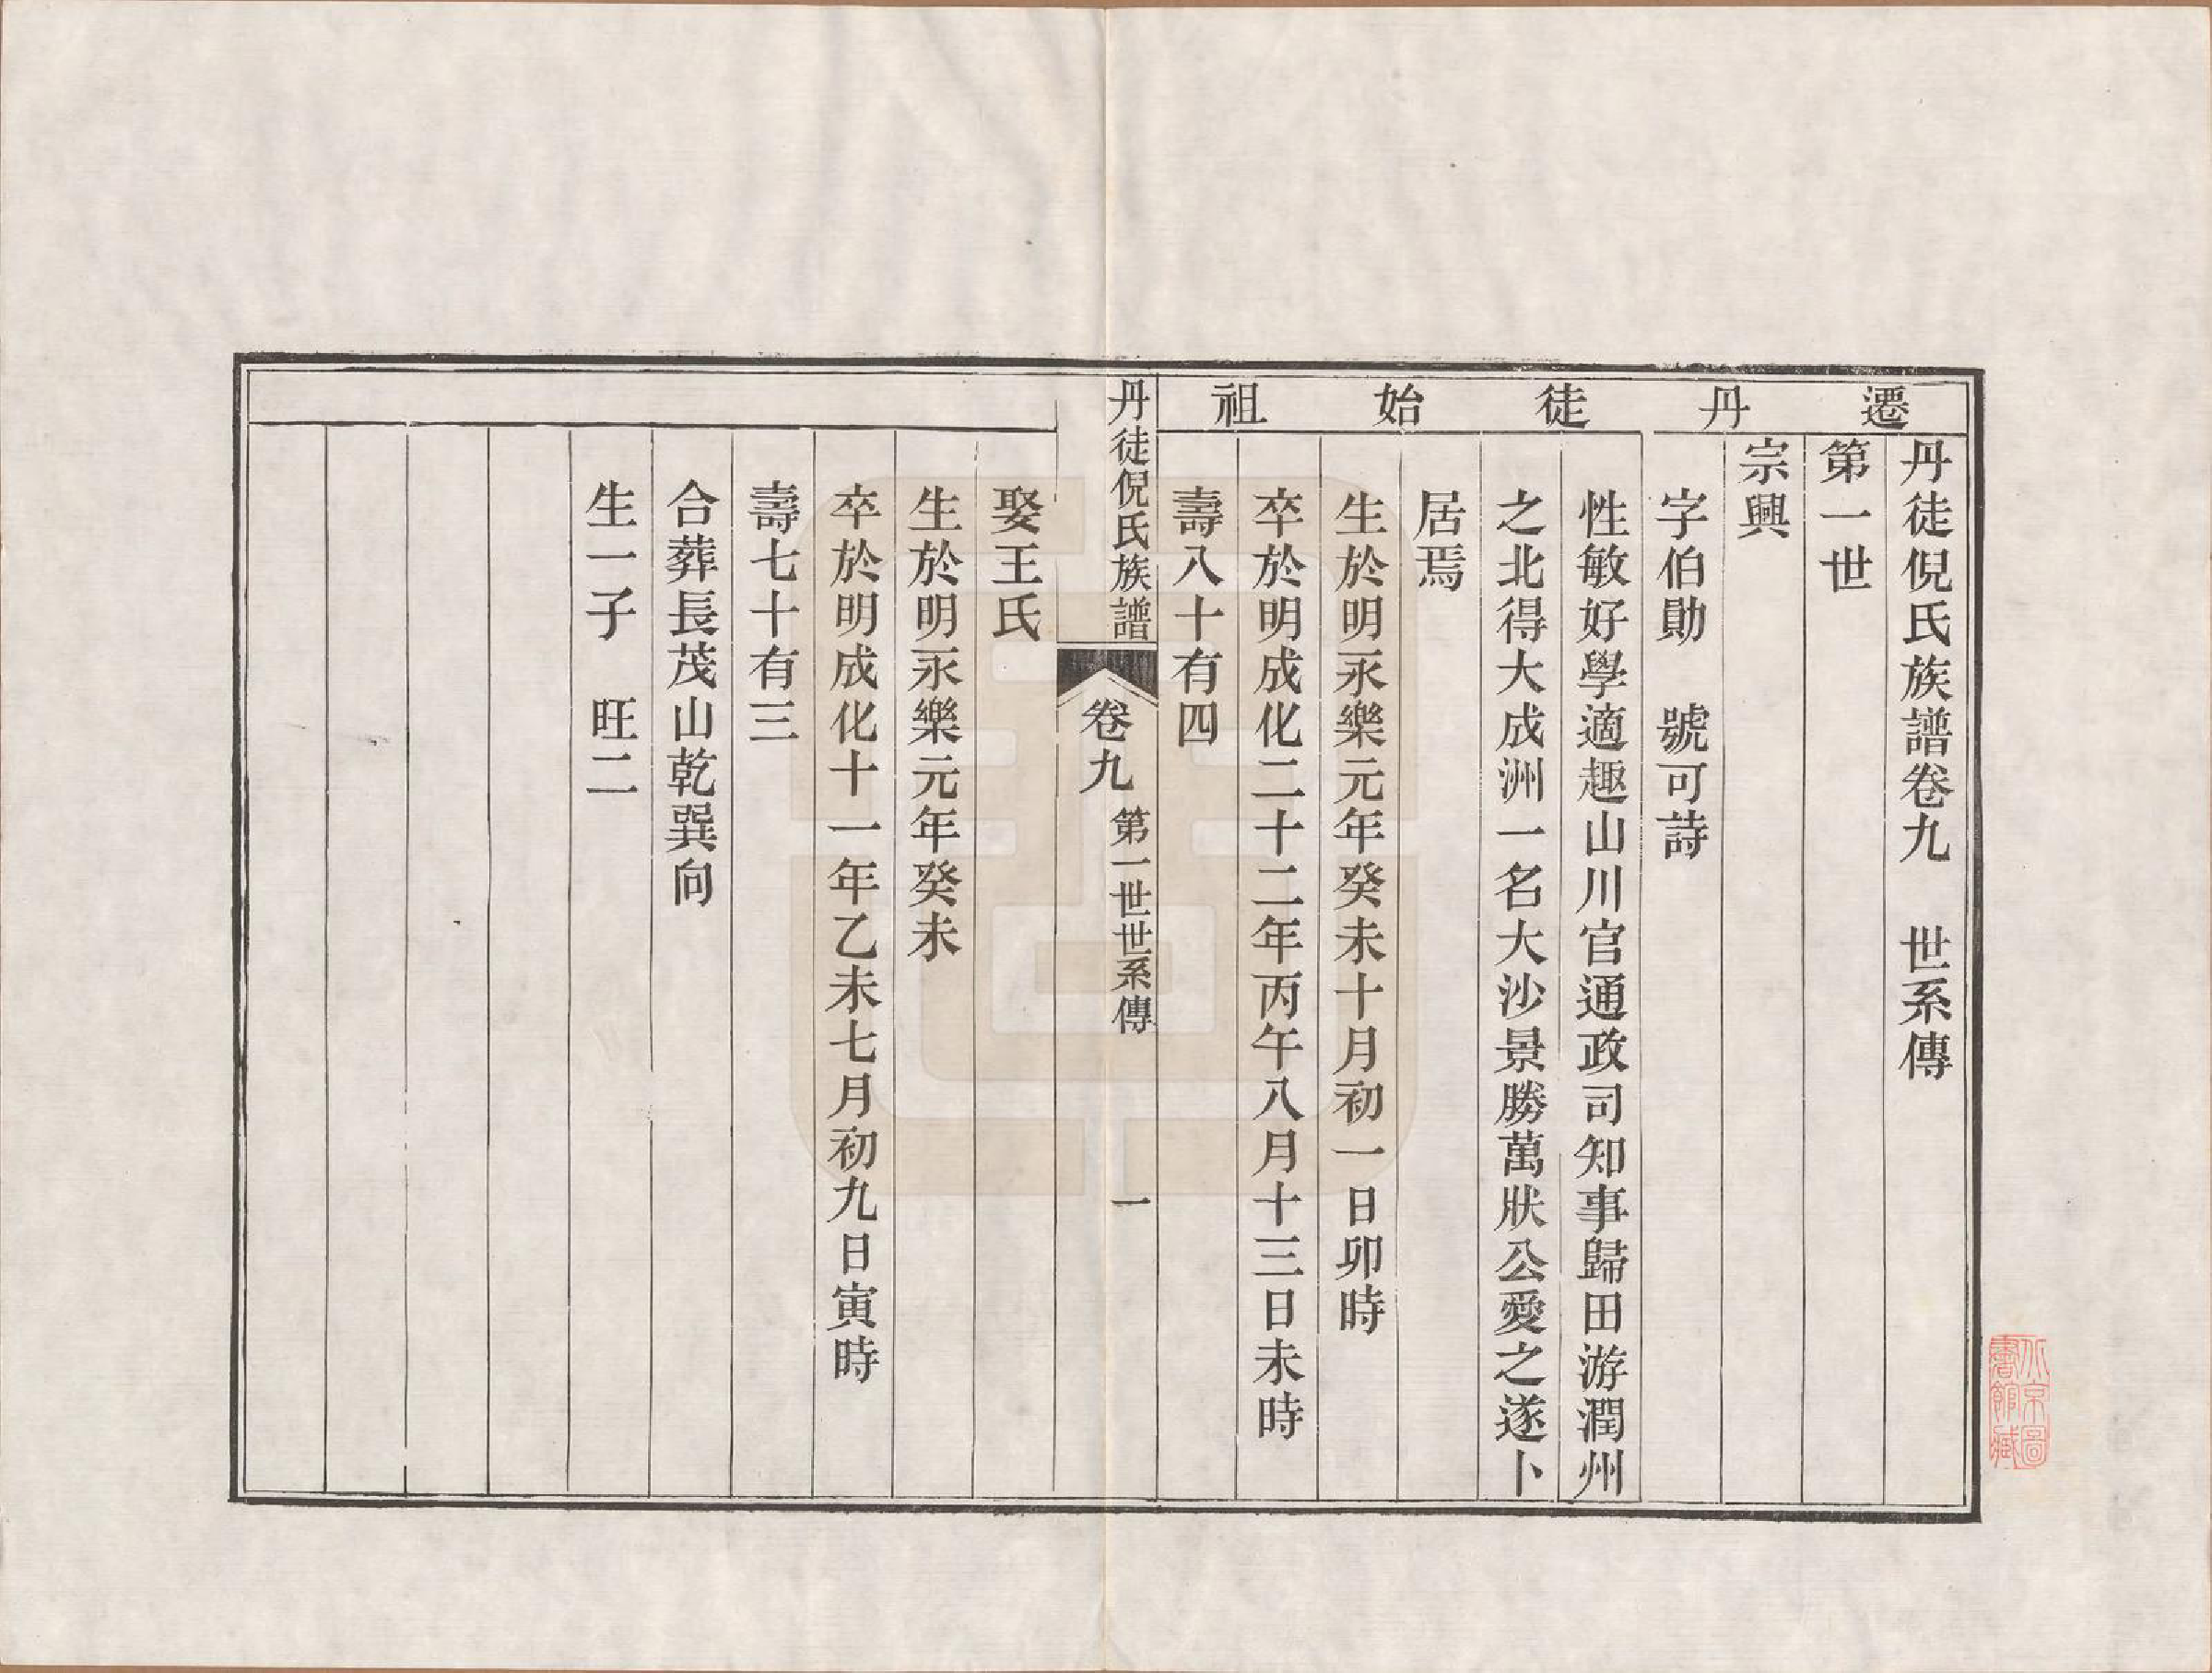 遷丹徒始祖
丹徒倪氏族譜卷九　世系傳
第一世
宗興
字伯勛　號可詩
性敏好學適趣山川官通政司知事歸田游潤州
之北得大成洲一名大沙景勝萬狀公愛之遂卜
居焉
生於明永樂元年癸未十月初一日卯時
卒於明成化二十二年丙午八月十三日未時
壽八十有四
丹徒倪氏族譜
卷九
第一世世系傳
一
娶王氏
生於明永樂元年癸未
卒於明成化十一年乙未七月初九日寅時
壽七十有三
合葬長茂山乾巽向
生一子　旺二
北京圖
書館藏